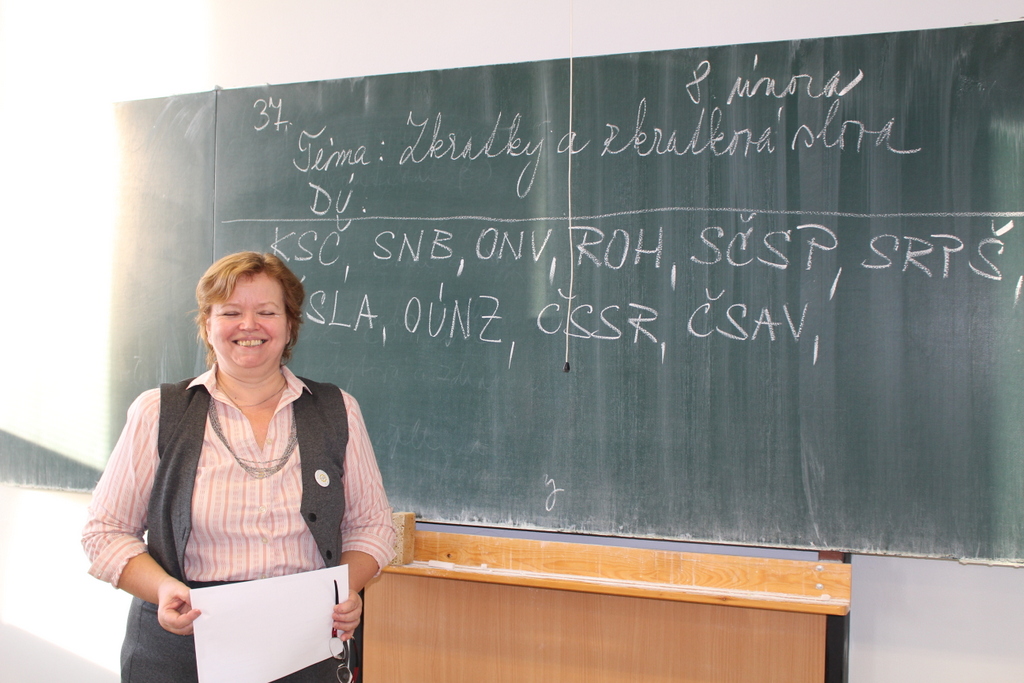 8. února
37.
Téma: Zkratky a zkratková slova
DÚ.
KSČ, SNB, ONV, ROH, SČSP, SRPŠ,
ČSLA, OÚNZ, ČSSR, ČSAV,
y